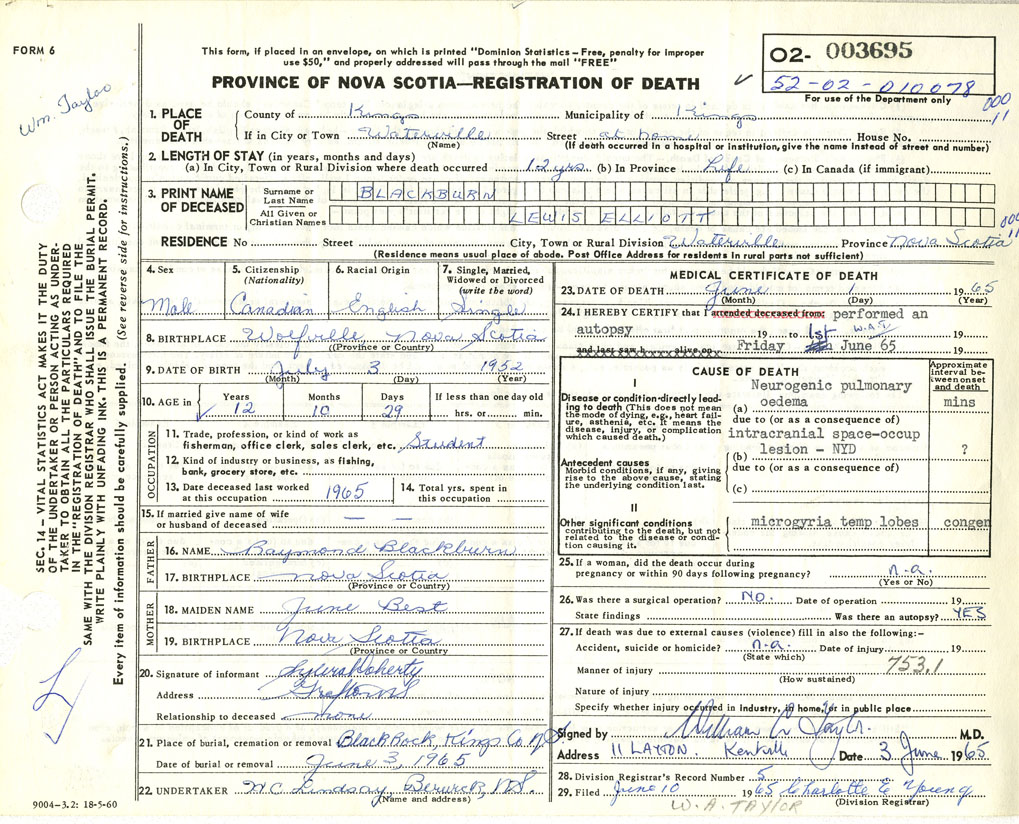 FORM 6
This form, if placed in an envelope, on which is printed "Dominion Statistics – Free, penalty for improper
use $50," and properly addressed will pass through the mail "FREE"
PROVINCE OF NOVA SCOTIA—REGISTRATION OF DEATH
02- 003695
✓ 52-02-010078
For use of the Department only
000
11
Wm. Taylor
1. PLACE OF DEATH
County of Kings Municipality of Kings
If in City or Town Waterville Street at home House No.
(Name) (If death occurred in a hospital or institution, give the name instead of street and number)
2. LENGTH OF STAY (in years, months and days)
(a) In City, Town or Rural Division where death occurred 12 yrs. (b) In Province Life (c) In Canada (if immigrant)
3. PRINT NAME OF DECEASED
Surname or Last Name BLACKBURN
All Given or Christian Names LEWIS ELLIOTT
RESIDENCE No Street City, Town or Rural Division Waterville Province Nova Scotia
(Residence means usual place of abode. Post Office Address for residents in rural parts not sufficient)
4. Sex 5. Citizenship (Nationality) 6. Racial Origin 7. Single, Married, Widowed or Divorced (write the word)
Male Canadian English Single
8. BIRTHPLACE Wolfville Nova Scotia
(Province or Country)
9. DATE OF BIRTH July 3 1952
(Month) (Day) (Year)
10. AGE in Years Months Days If less than one day old
✓ 12 10 29 hrs. or min.
OCCUPATION
11. Trade, profession, or kind of work as
fisherman, office clerk, sales clerk, etc. Student
12. Kind of industry or business, as fishing,
bank, grocery store, etc.
13. Date deceased last worked at this occupation 1965 14. Total yrs. spent in this occupation
15. If married give name of wife
or husband of deceased — —
FATHER
16. NAME Raymond Blackburn
17. BIRTHPLACE Nova Scotia
(Province or Country)
MOTHER
18. MAIDEN NAME June Best
19. BIRTHPLACE Nova Scotia
(Province or Country)
20. Signature of informant Doherty
Address Grafton NS
Relationship to deceased none
21. Place of burial, cremation or removal Black Rock, Kings Co. NS
Date of burial or removal June 3, 1965
22. UNDERTAKER W.C. Lindsay Berwick, NS.
(Name and address)
9004-3.2: 18-5-60
MEDICAL CERTIFICATE OF DEATH
23. DATE OF DEATH June 1 1965
(Month) (Day) (Year)
24. I HEREBY CERTIFY that I attended deceased from: performed an
autopsy 19 to 1st W.A.T. 19
and last saw h alive on Friday June 65 19
CAUSE OF DEATH
Approximate interval between onset and death
I
Disease or condition directly leading to death (This does not mean the mode of dying, e.g., heart failure, asthenia, etc. It means the disease, injury, or complication which caused death.)
Neurogenic pulmonary
(a) oedema mins
due to (or as a consequence of)
intracranial space-occup
(b) lesion - NYD ?
due to (or as a consequence of)
Antecedent causes
Morbid conditions, if any, giving rise to the above cause, stating the underlying condition last.
(c)
II
Other significant conditions
contributing to the death, but not related to the disease or condition causing it.
microgyria temp lobes congen
25. If a woman, did the death occur during
pregnancy or within 90 days following pregnancy? n.a.
(Yes or No)
26. Was there a surgical operation? NO. Date of operation 19
State findings Was there an autopsy? YES
27. If death was due to external causes (violence) fill in also the following:–
Accident, suicide or homicide? n.a. Date of injury 19
(State which)
Manner of injury 753.1
(How sustained)
Nature of injury
Specify whether injury occurred in industry, in home, or in public place
Signed by William A Taylor M.D.
Address 11 LAYTON. Kentville Date 3 June 1965
28. Division Registrar's Record Number 5
29. Filed June 10 1965 Charlotte E Young
(Division Registrar)
W.A. TAYLOR
SEC. 14 – VITAL STATISTICS ACT MAKES IT THE DUTY
OF THE UNDERTAKER OR PERSON ACTING AS UNDER-
TAKER TO OBTAIN ALL THE PARTICULARS REQUIRED
IN THE "REGISTRATION OF DEATH" AND TO FILE THE
SAME WITH THE DIVISION REGISTRAR WHO SHALL ISSUE THE BURIAL PERMIT.
WRITE PLAINLY WITH UNFADING INK. THIS IS A PERMANENT RECORD.
Every item of information should be carefully supplied. (See reverse side for instructions.)